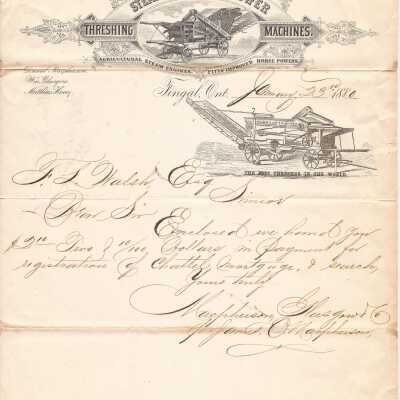 THRESHING MACHINES.
AGRICULTURAL STEAM ENGINES, PITTS IMPROVED HORSE POWERS.
Fingal, Ont. January 23rd 1880
THE BEST THRESHER IN THE WORLD
F. L. Walsh, Esq
Simcoe
Dear Sir Enclosed we hand you
$2.10 Two & 10/100 Dollars in payment for
registration of Chattel mortgage, & search,
Yours truly
Macpherson, Glasgow & Co